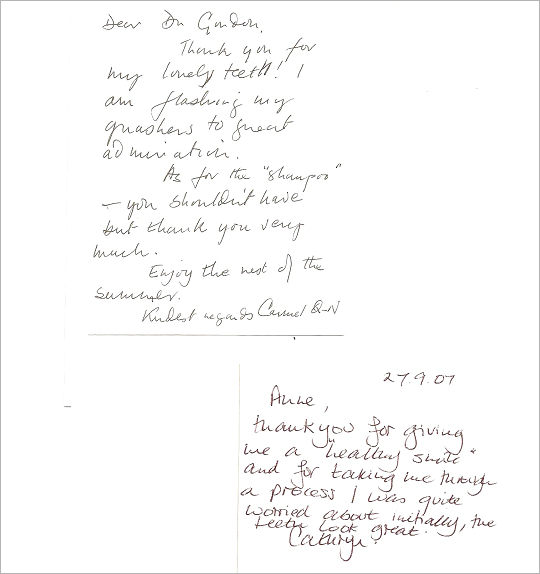 Dear Dr Gordon,
Thank you for
my lovely teeth! I
am flashing my
gnashers to great
admiration.
As for the "shampoo"
— you shouldn't have
but thank you very
much.
Enjoy the rest of the
summer.
Kindest regards Carmel Q-N
27.9.07
Anne,
thankyou for giving
me a "healthy smile"
and for taking me through
a process I was quite
worried about initially, the
teeth look great.
Cathryn.